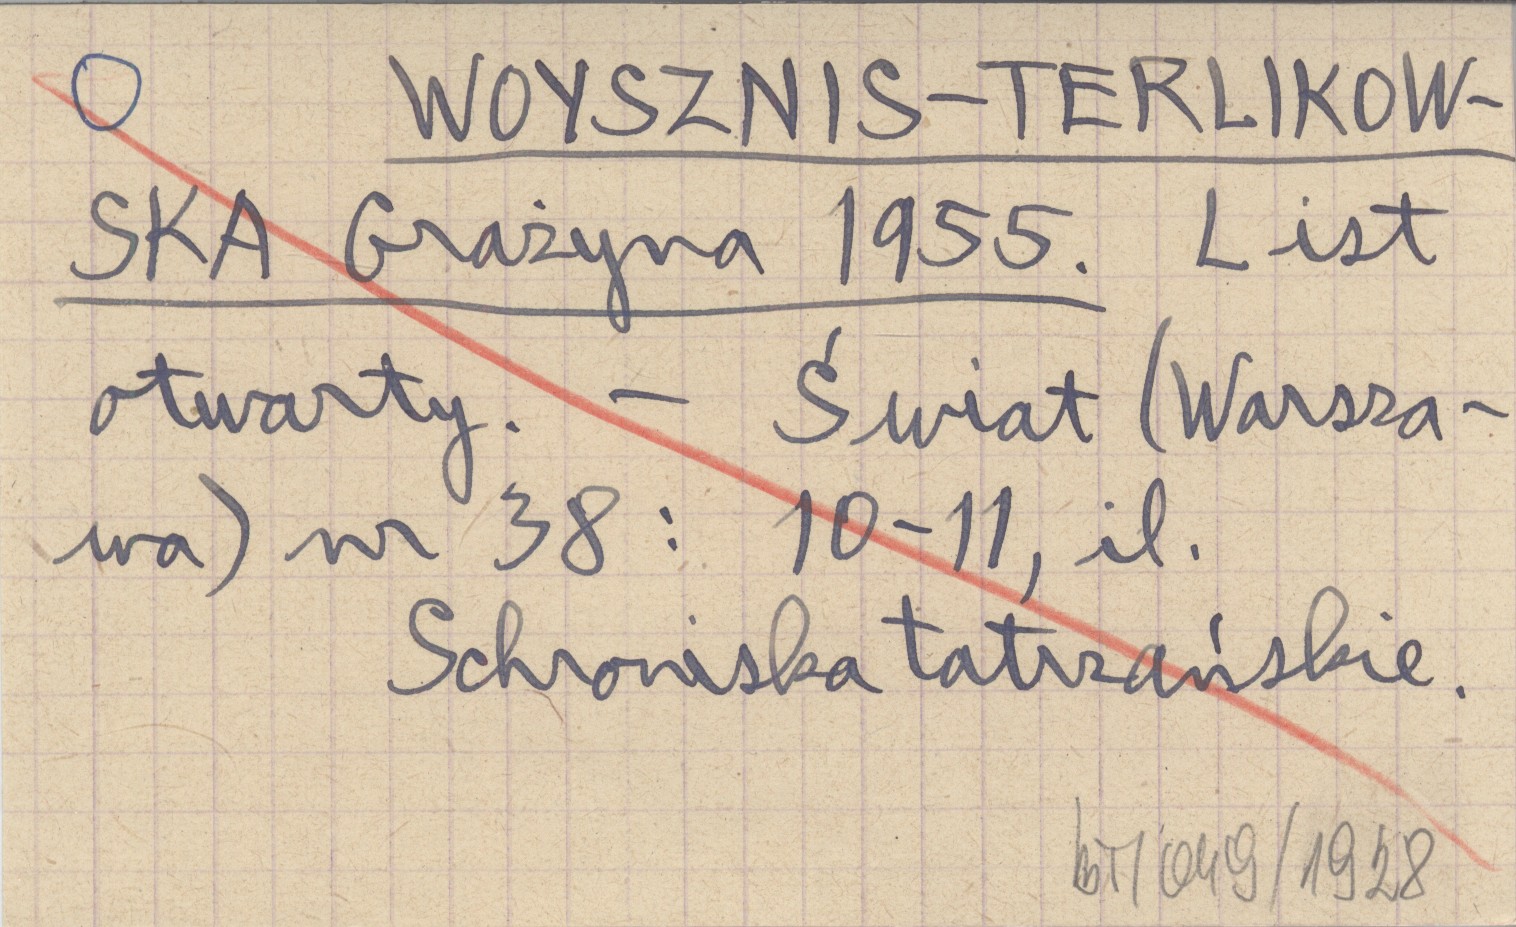 WOYSZNIS-TERLIKOW-
SKA Grażyna 1955. List
otwarty. – Świat (Warsza-
wa) nr 38: 10-11, il.
Schroniska tatrzańskie.
BT/049/1928